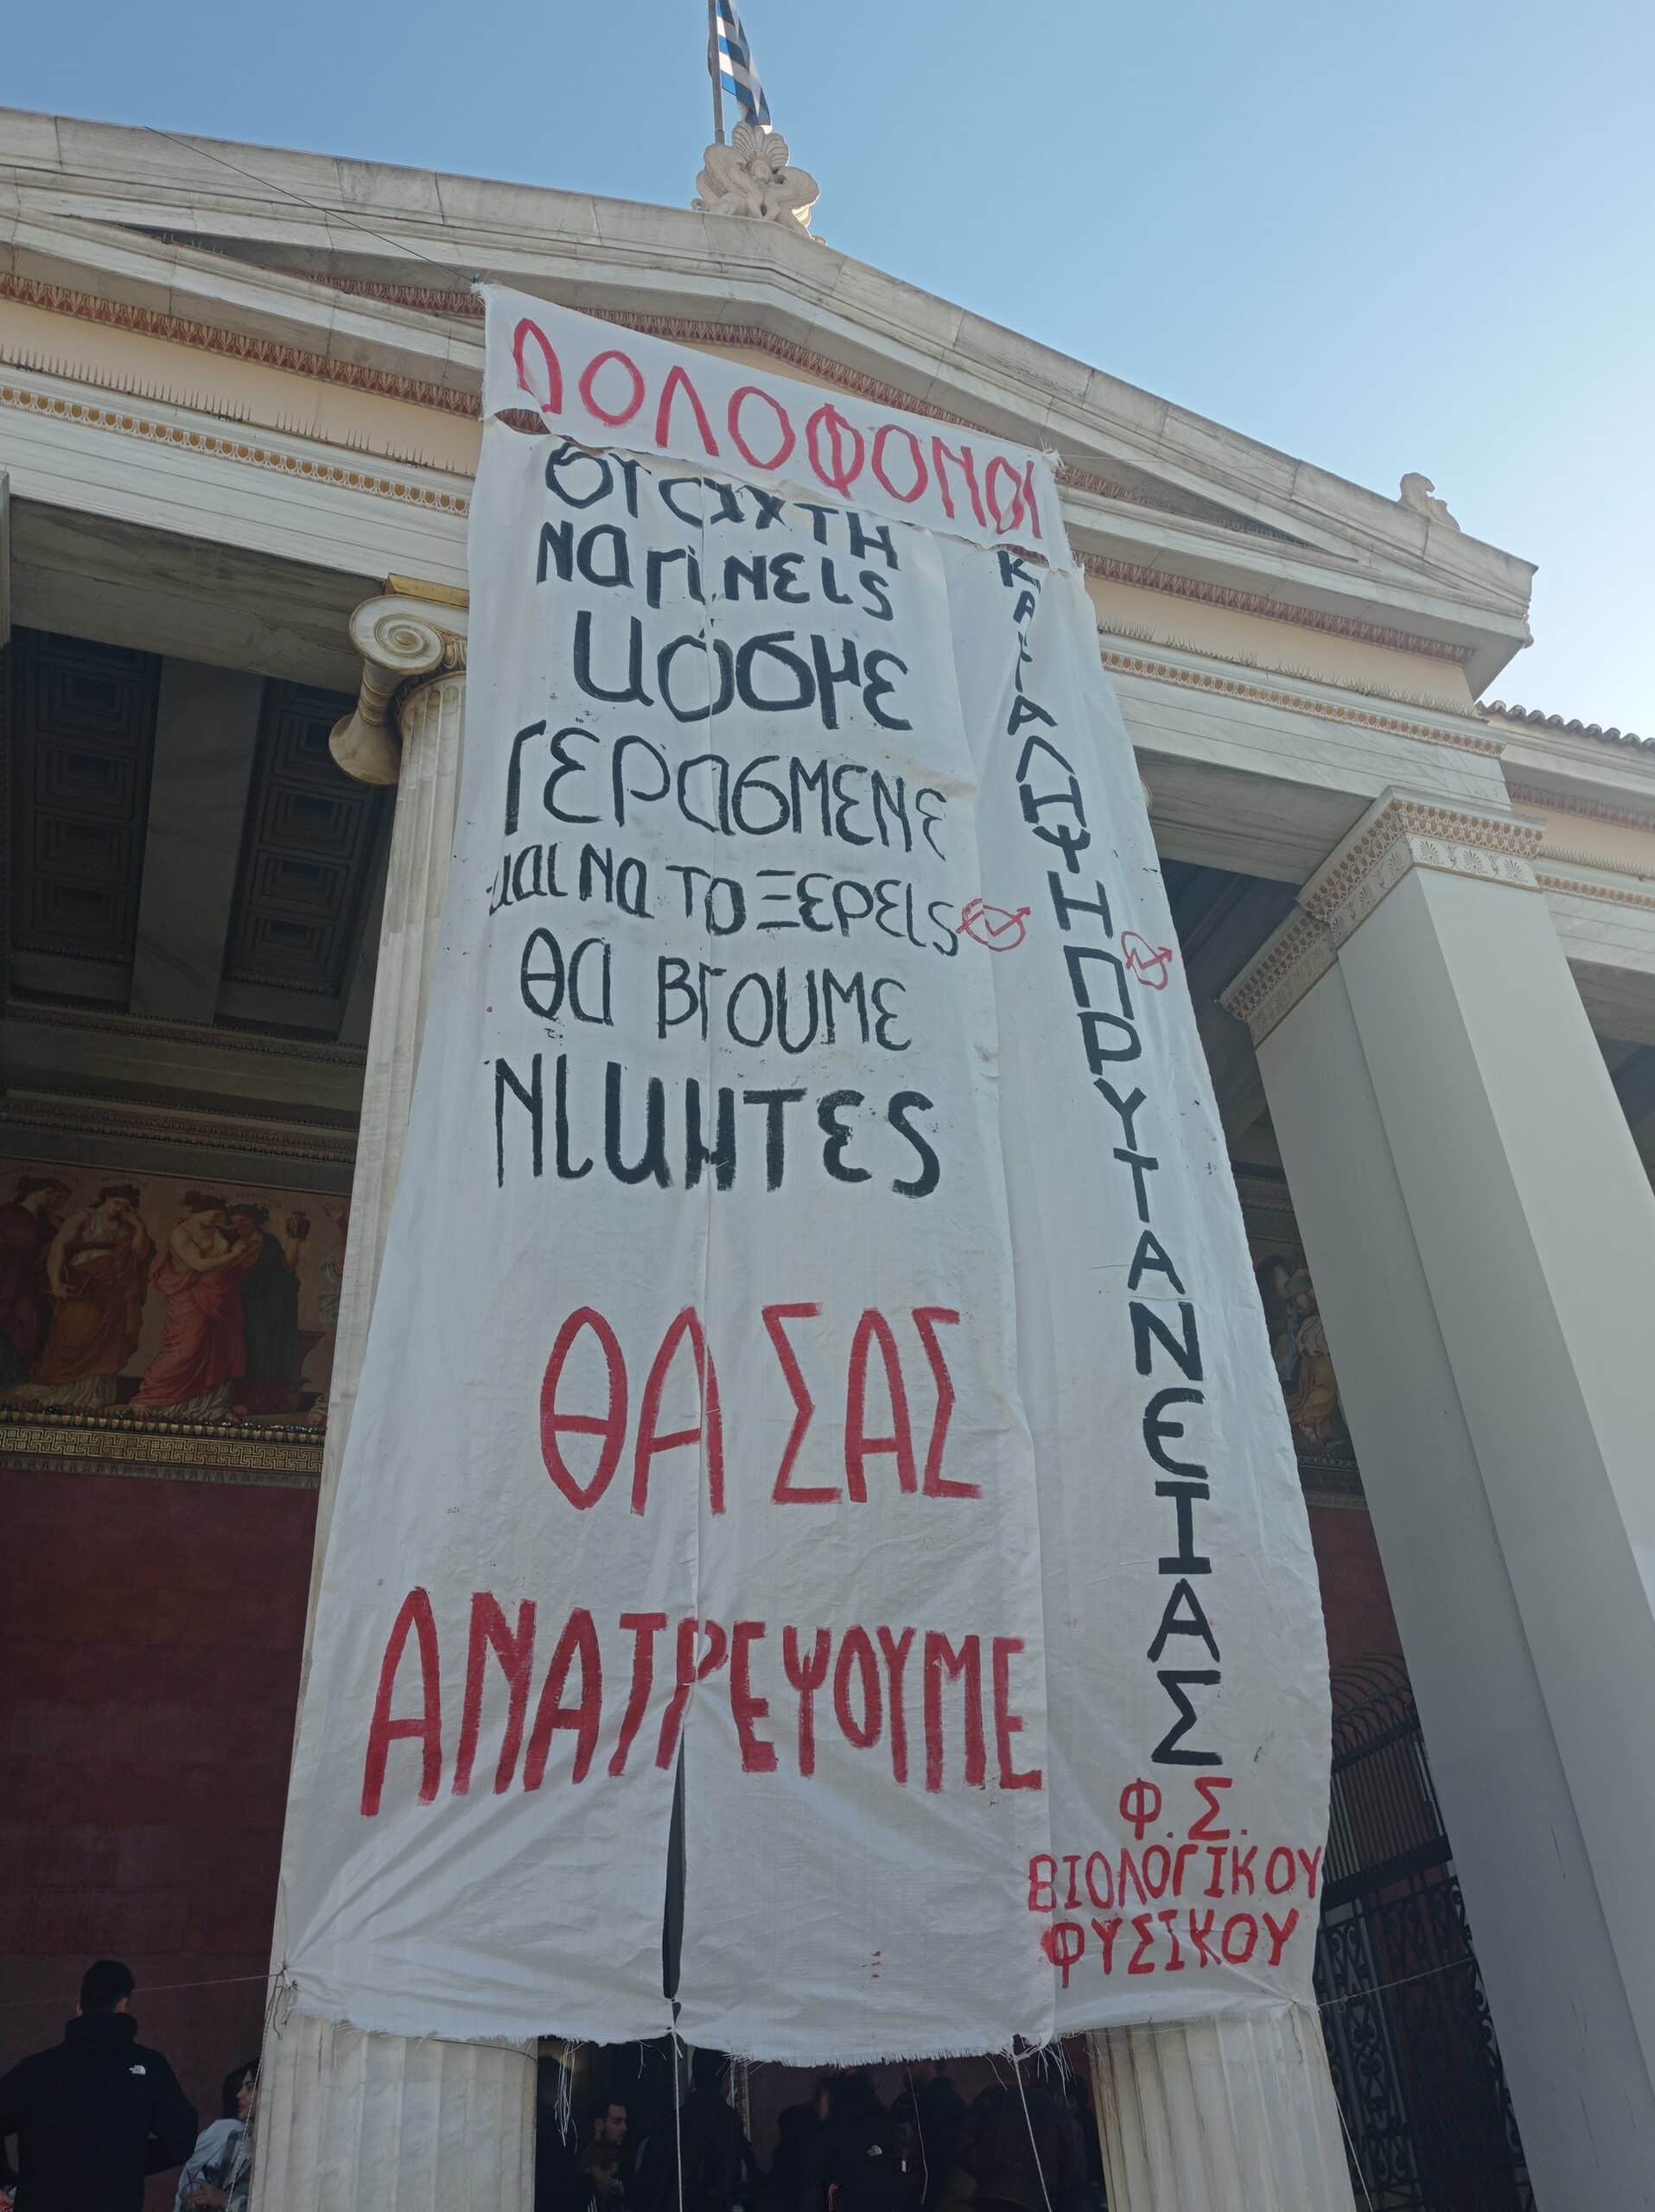 ΔΟΛΟΦΟΝΟΙ
ΣΤΑΧΤΗ
ΝΑ ΓίΝΕΙS
ΚόσμΕ
ΓΕΡΑσΜΕΝΕ
ΚΑΙ ΝΑ ΤΟ ΞΕΡΕΙS
ΘΑ ΒΓΟUΜΕ
ΝΙΚΗΤΕS
ΘΑ ΣΑΣ
ΑΝΑΤΡΕΨΟΥΜΕ
ΚΑΤΑΛΗΨΗ ΠΡΥΤΑΝΕΙΑΣ
Φ.Σ.
ΒΙΟΛΟΓΙΚΟΥ
ΦΥΣΙΚΟΥ